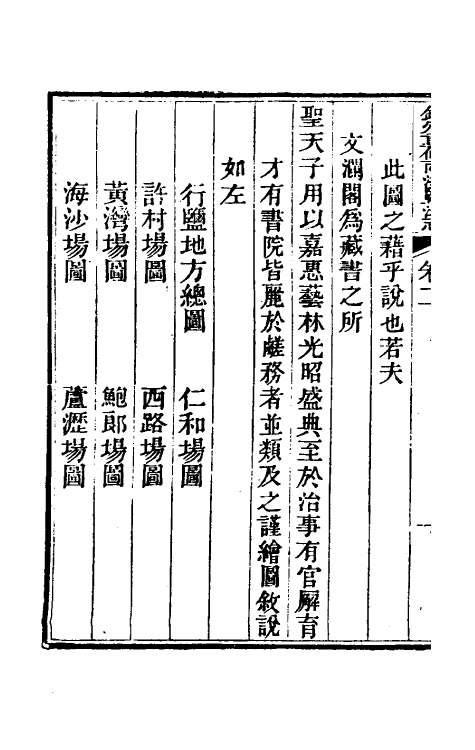 卷二
此圖之藉乎說也若夫
文瀾閣爲藏書之所
聖天子用以嘉惠藝林光昭盛典至於治事有官廨育
才有書院皆麗於鹺務者並類及之謹繪圖敘說
如左
行鹽地方總圖 仁和場圖
許村場圖 西路場圖
黃灣場圖 鮑郎場圖
海沙場圖 蘆瀝場圖